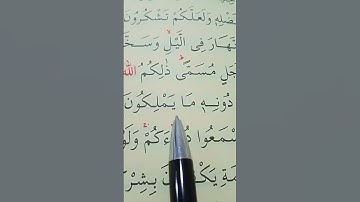 ضْلِهٖ وَلَعَلَّكُمْ تَشْكُرُونَ
نَّهَارَ فِى الَّيْلِ وَسَخَّ
جَلٍ مُسَمًّى ذٰلِكُمُ اللّٰهُ
دُونِهٖ مَا يَمْلِكُونَ
سْمَعُوا دُعَٓاءَكُمْ وَلَوْ
مَةِ يَكْفُرُونَ بِشِرْكِ